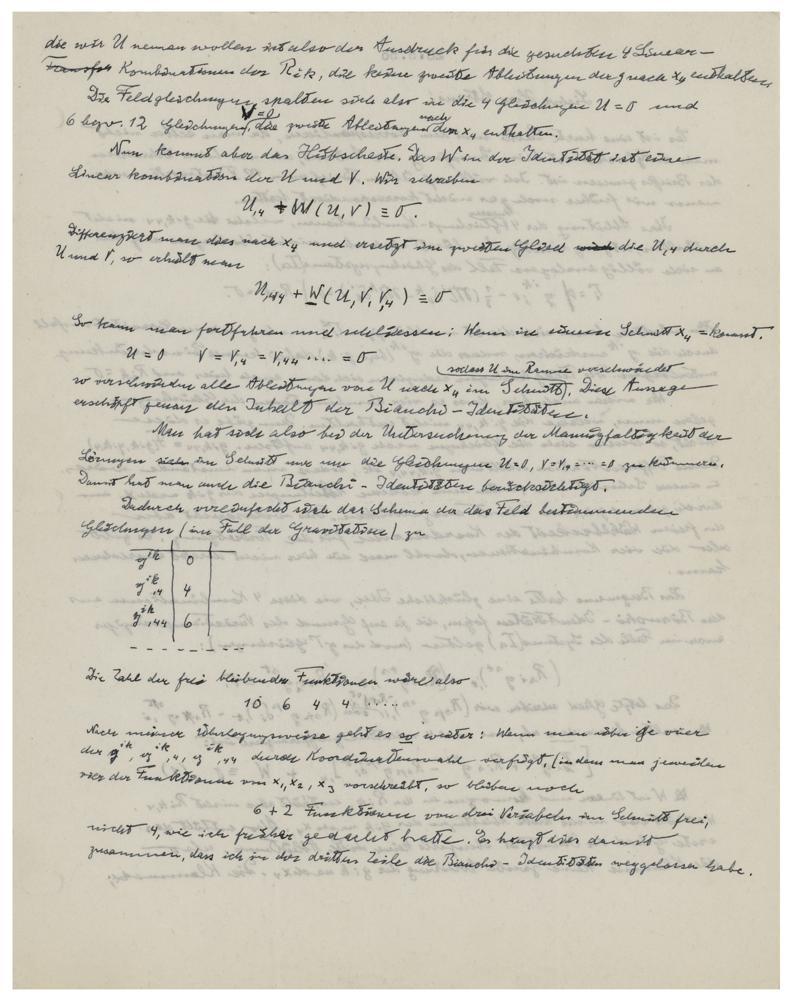 die wir U nennen wollen ist also der Ausdruck für die gesuchten 4 Linear-
Kombinationen der Rik, die keine zweite Ableitungen der g nach x4 enthalten.
Die Feldgleichungen spalten sich also in die 4 Gleichungen U = 0 und
6 bezw. 12 Gleichungen V = 0, die zweite Ableitungen nach x4 enthalten.
Nun kommt aber das Hübscheste. Das W in der Identität ist eine
Linearkombination der U und V. Wir schreiben
U,4 + W(U, V) ≡ 0.
Differenziert man dies nach x4 und ersetzt im zweiten Glied die U,4 durch
U und V, so erhält man
U,44 + W(U, V, V,4) ≡ 0
So kann man fortfahren und schliessen: Wenn in einem Schnitt x4 = konst.
U = 0 V = V,4 = V,44 .... = 0
(sodass U im Raume verschwindet
so verschwinden alle Ableitungen von U nach x4 im Schnitt). Diese Aussage
erschöpft genau den Inhalt der Bianchi-Identitäten.
Man hat sich also bei der Untersuchung der Mannigfaltigkeit der
Lösungen im Schnitt nur um die Gleichungen U=0, V=V,4=...=0 zu kümmern.
Damit hat man auch die Bianchi-Identitäten berücksichtigt.
Dadurch vereinfacht sich das Schema der das Feld bestimmenden
Gleichungen (im Fall der Gravitation) zu
g^ik | 0
g^ik,4 | 4
g^ik,44 | 6
Die Zahl der frei bleibenden Funktionen wäre also
10 6 4 4 .....
Nach meiner Überlegungsweise geht es so weiter: Wenn man über je vier
der g^ik, g^ik,4, g^ik,44 durch Koordinatenwahl verfügt, (indem man jeweilen
vier der Funktionen von x1, x2, x3 vorschreibt, so bleiben noch
6 + 2 Funktionen von drei Variabeln im Schnitt frei,
nicht 4, wie ich früher gedacht hatte. Es hängt dies damit
zusammen, dass ich in der dritten Zeile die Bianchi-Identitäten weggelassen habe.